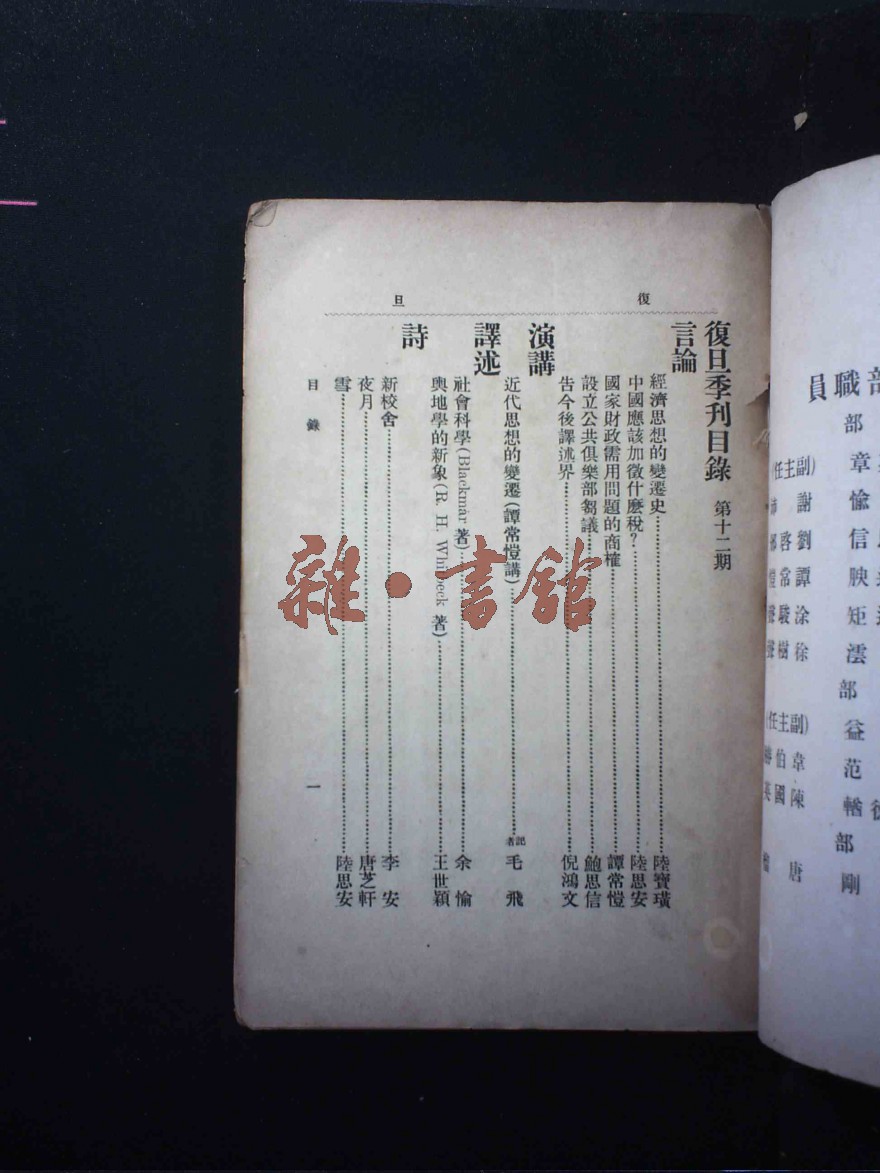 復旦
復旦季刊目錄 第十二期
言論
經濟思想的變遷史 陸寶璜
中國應該加徵什麽稅？ 陸思安
國家財政需用問題的商榷 譚常愷
設立公共俱樂部芻議 鮑思信
告今後譯述界 倪鴻文
演講
近代思想的變遷(譚常愷講) 記者 毛飛
譯述
社會科學(Blackmar 著) 余愉
輿地學的新象(R. H. Whitbeck 著) 王世穎
詩
新校舍 李安
夜月 唐芝軒
雪 陸思安
目錄
一
雜·書館
部職員
(副主任)
謝
劉啓
譚常愷
涂駿聲
徐樹聲
(副主任)
韋伯
陳國英
唐
部
章
愉
信
腴
矩
澐
部
益
范
輶
部
剛